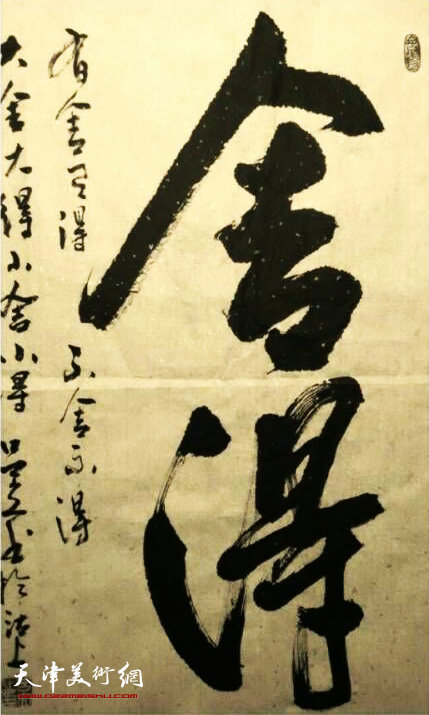 舍得
有舍有得 不舍不得
大舍大得小舍小得 书於沽上
天津美術網
www.022meishu.com